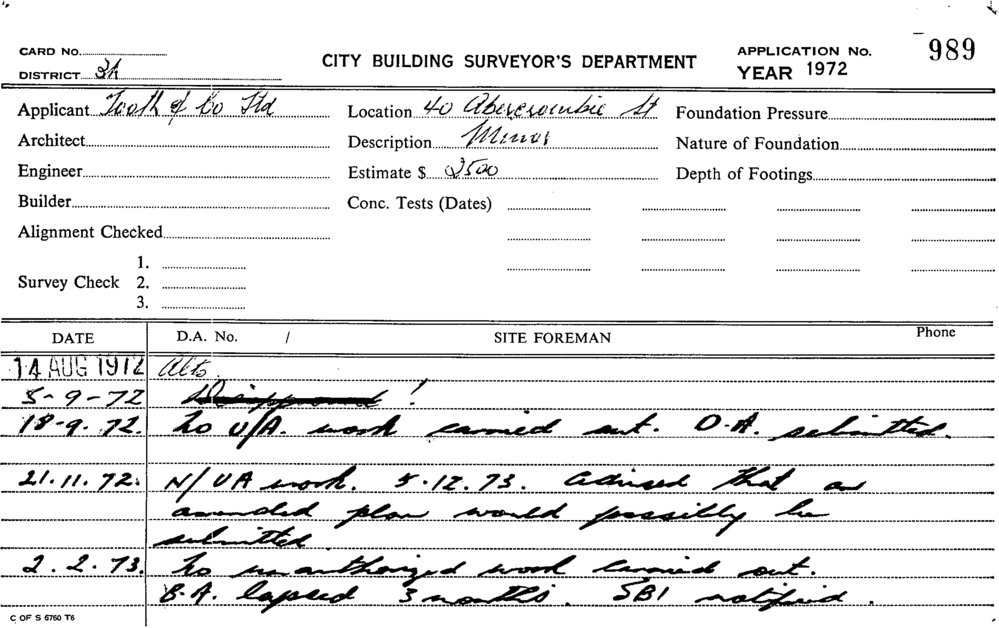 CARD No.
DISTRICT 3A
CITY BUILDING SURVEYOR'S DEPARTMENT
APPLICATION No. 989
YEAR 1972
Applicant Tooth & Co Ltd
Location 40 Abercrombie St
Foundation Pressure
Architect
Description Minor
Nature of Foundation
Engineer
Estimate $ 2500
Depth of Footings
Builder
Conc. Tests (Dates)
Alignment Checked
Survey Check 1.
2.
3.
DATE D.A. No. / SITE FOREMAN Phone
14 AUG 1972 Alts.
5-9-72 Disapproved!
18-9.72. No U/A. work carried out. D.A. submitted.
21.11.72. N/UA work. 5.12.73. advised that an
amended plan would possibly be
submitted.
2.2.73. No unauthorized work carried out.
B.A. lapsed 3 months. SBI notified.
C OF S 6760 T6